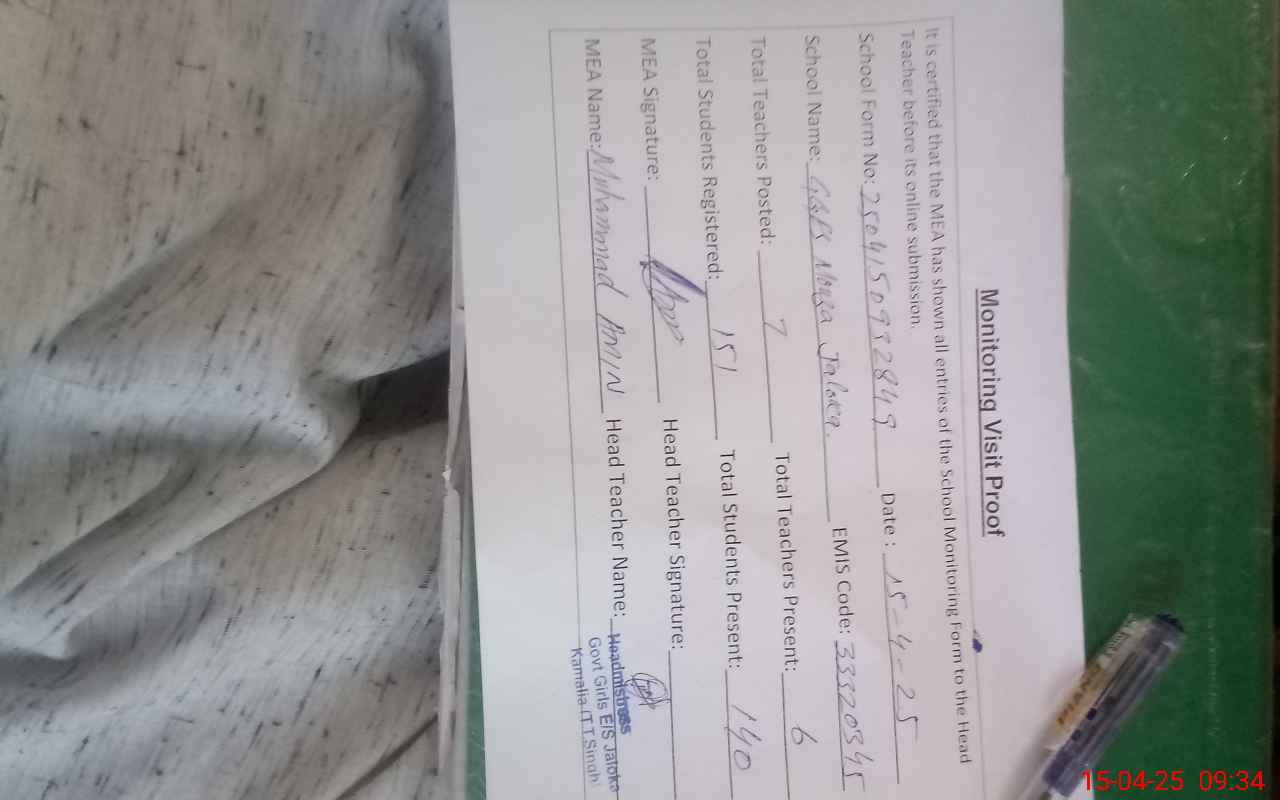 Monitoring Visit Proof
It is certified that the MEA has shown all entries of the School Monitoring Form to the Head
Teacher before its online submission.
School Form No: 250415099 2849 Date : 15-4-25
School Name: GGES Mouza Jaloka. EMIS Code: 33320345
Total Teachers Posted: 7 Total Teachers Present: 6
Total Students Registered: 151 Total Students Present: 140
MEA Signature: Head Teacher Signature:
MEA Name: Muhammad AMIN Head Teacher Name: Headmistress
Govt Girls E/S Jaloka
Kamalia (T.T.Singh)
15-04-25 09:34